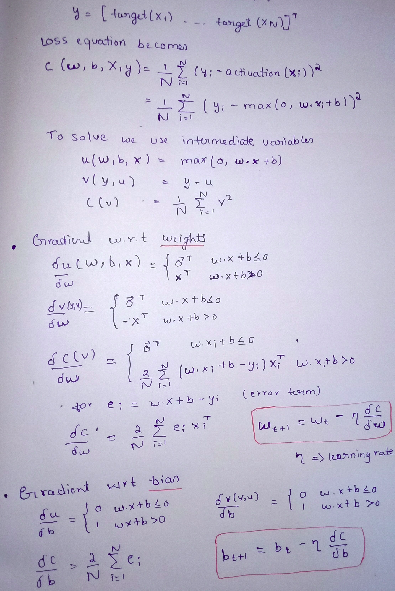 y = [ target(x₁) ... target(x_N)]ᵀ
Loss equation becomes
C(w, b, X, y) = 1/N Σ_{i=1}^{N} (yᵢ - activation(xᵢ))²
= 1/N Σ_{i=1}^{N} (yᵢ - max(0, w.xᵢ+b))²
To solve we use intermediate variables
u(w, b, x) = max(0, w.x+b)
v(y, u) = y - u
C(v) = 1/N Σ_{i=1}^{N} v²
• Gradient w.r.t weights
δu(w, b, x)/δw = { 0⃗ᵀ w.x+b≤0
xᵀ w.x+b>0
δv(y,u)/δw = { 0⃗ᵀ w.x+b≤0
-xᵀ w.x+b>0
δC(v)/δw = { 0⃗ᵀ w.xᵢ+b≤0
2/N Σ_{i=1}^{N} (w.xᵢ+b-yᵢ)xᵢᵀ w.xᵢ+b>0
• for eᵢ = w x+b-yᵢ (error term)
δC/δw = 2/N Σ_{i=1}^{N} eᵢ xᵢᵀ
w_{t+1} = w_t - η δC/δw
η => learning rate
• Gradient wrt bias
δu/δb = { 0 w.x+b≤0
1 wx+b>0
δv(y,u)/δb = { 0 w.x+b≤0
1 w.x+b>0
δC/δb = 2/N Σ_{i=1}^{N} eᵢ
b_{t+1} = b_t - η δC/δb